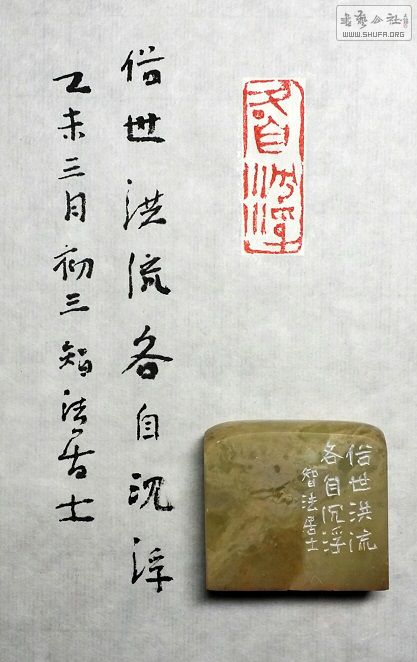 俗世洪流各自沉浮
乙未三月初三智法居士
各自沉浮
俗世洪流
各自沉浮
智法居士
书艺公社
WWW.SHUFA.ORG